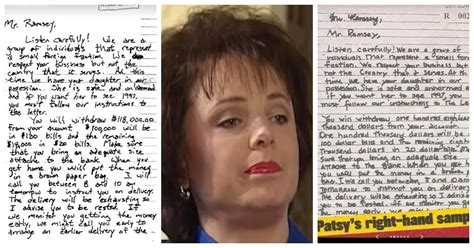 Mr. Ramsey,
Listen carefully! We are a
group of individuals that represent
a small foreign faction. We do
respect your bussiness but not the
country that it serves. At this
time we have your daughter in our
posession. She is safe and unharmed
and if you want her to see 1997,
you must follow our instructions to
the letter.
You will withdraw $118,000.00
from your account. $100,000 will be
in $100 bills and the remaining
$18,000 in $20 bills. Make sure
that you bring an adequate size
attache to the bank. When you
get home you will put the money
in a brown paper bag. I will
call you between 8 and 10 am
tomorrow to instruct you on delivery.
The delivery will be exhausting so
I advise you to be rested. If
we monitor you getting the money
early, we might call you early to
arrange an earlier delivery of the
Mr. Ramsey,
Listen carefully! We are a group of
individuals that represent a small foreign
faction. We respect your business but
not the country that it serves. At this
time we have your daughter in our
possession. She is safe and unharmed and
if you want her to see 1997, you must
follow our instructions to the
You will withdraw one hundred eighteen
thousand dollars from your account.
One hundred thousand dollars will be in
100 dollar bills and the remaining eighteen
thousand dollars in 20 dollar bills
sure that you bring an adequate size
attache to the bank. When you get
you will put the money in a brown
bag. I will call you between 8 and 10 am
tomorrow to instruct you on delivery
The delivery will be exhausting so I
you to be rested. If we monitor you
the money early, we might
Patsy's right-hand samp